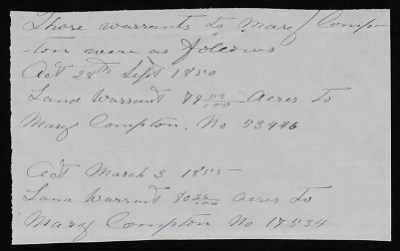 Those warrants to Mary Comp-
ton were as follows
Act 28th Sept 1850
Land Warrant 79 53/100 Acres to
Mary Compton. No 53446
Act March 3 1855
Land Warrant 80 /100 acres to
Mary Compton No 17534